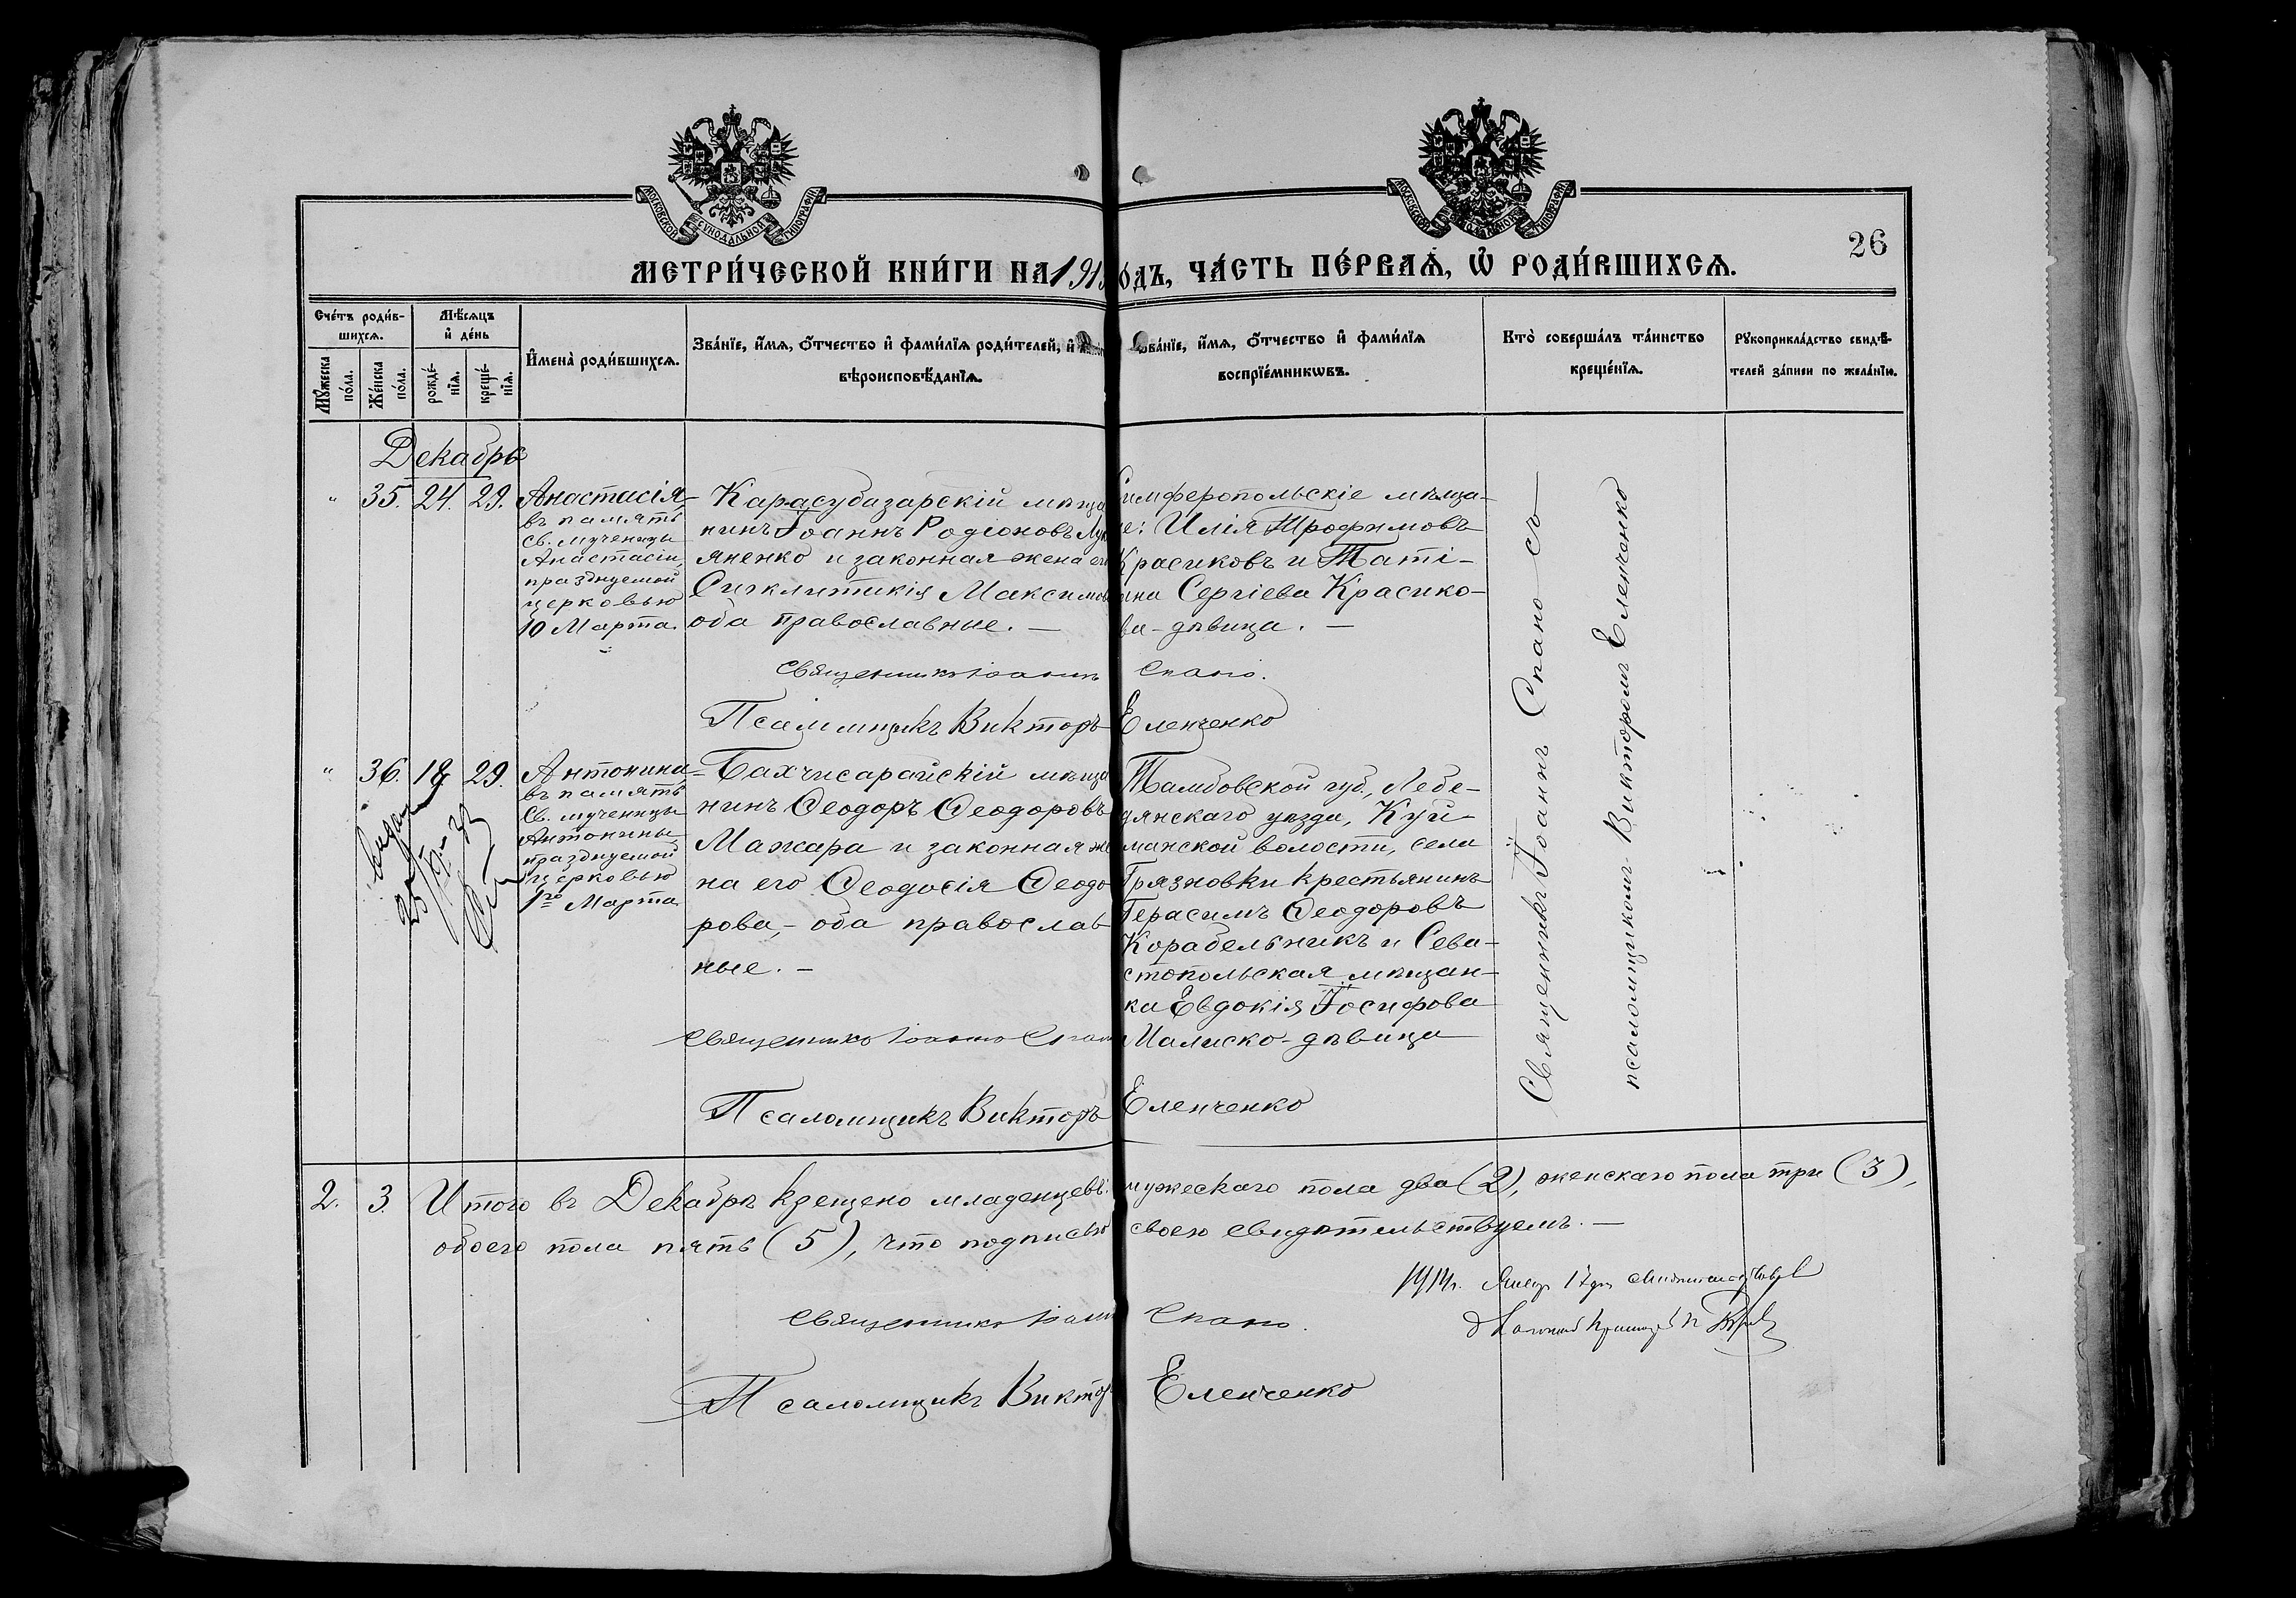 МОСКОВСКОЙ СУНОДАЛЬНОЙ ТИПОГРАФІИ
МОСКОВСКОЙ СУНОДАЛЬНОЙ ТИПОГРАФІИ
26
МЕТРИ́ЧЕСКОЙ КНИ́ГИ НА 191
О́ДЪ, ЧА́СТЬ ПЕ́РВАѦ, Ѡ РОДИ́ВШИХСѦ.
Сче́тъ роди́в-
шихсѧ.
Мѣ́сѧцъ
и҆ де́нь
Мꙋ́жеска
по́ла.
Же́нска
по́ла.
рожде́-
нїѧ.
креще́-
нїѧ.
И҆мена̀ роди́вшихсѧ.
Зва́нїе, и҆́мѧ, ѻ҆́тчество и҆ фами́лїѧ роди́телей, и҆
вѣроисповѣ́данїѧ.
Зва́нїе, и҆́мѧ, ѻ҆́тчество и҆ фами́лїѧ
воспрїе́мникѡвъ.
Кто̀ соверша́лъ та́инство
креще́нїѧ.
Рꙋкоприкла́дство свидѣ́-
телей за́писи по жела́нїю.
Декабрь
" 35. 24. 29.
Анастасія,
въ память
св. мученицы
Анастасіи,
празднуемой
церковью
10 Марта.
Карасубазарскій мѣща
нинъ Іоаннъ Родіоновъ Лук
яненко и законная жена ег
Сигклитикія Максимов
оба православные. —
Симферопольскіе мѣща-
не: Илія Трофимовъ
Красиковъ и Таті-
ана Сергіева Красико-
ва - дѣвица. —
Священникъ Іоаннъ Спано.
Псаломщикъ Викторъ Еленченко
" 36. 18 29.
Антонина
въ память
Св. мученицы
Антонины
празднуемой
церковью
1го Марта
Бахчисарайскій мѣща
нинъ Ѳеодоръ Ѳеодоровъ
Мажара и законная же
на его Ѳеодосія Ѳеодо
рова, – оба православ
ные. –
Тамбовской губ., Лебе-
дянскаго уѣзда, Куй-
манской волости, села
Грязновки крестьянинъ
Герасимъ Ѳеодоровъ
Корабельникъ и Сева-
стопольская мѣщан-
ка Евдокія Іосифова
Малиско - дѣвица
Священникъ Іоаннъ Спан
Псаломщикъ Викторъ Еленченко
Священникъ Іоаннъ Спано съ
псаломщикомъ Викторомъ Еленченко
2. 3. Итого въ Декабрѣ крещено младенцевъ: мужескаго пола два (2), женскаго пола три (3),
обоего пола пять (5), что подписью своею свидѣтельствуемъ. —
1914 г.
Священникъ Іоанн Спано.
Псаломщикъ Виктор Еленченко